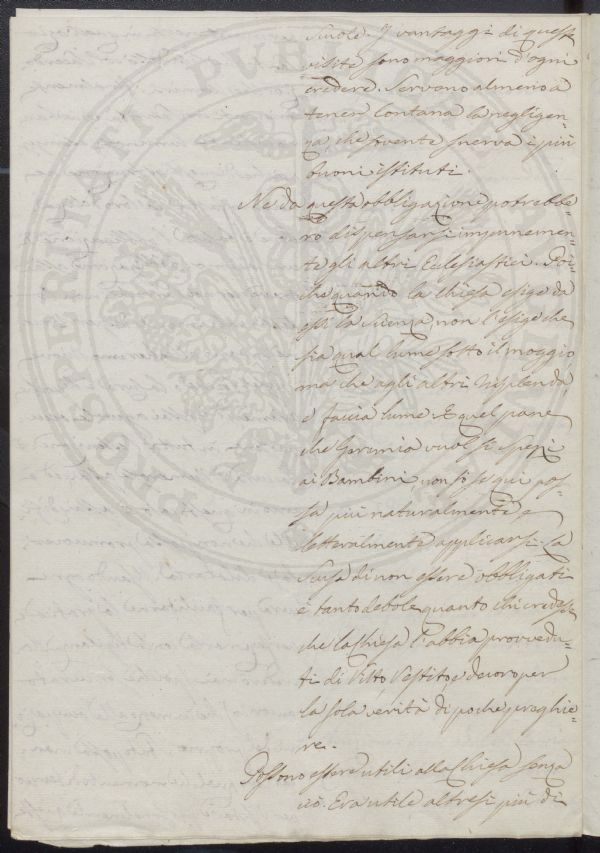 Scuole. I vantaggi di queste
visite sono maggiori d'ogni
credere. Servono almeno a
tener lontana la negligen-
za, che sovente snerva i più
buoni istituti.
Ne da questa obbligazione potrebbe-
ro dispensarsi impunemen-
te gli altri Eclesiastici. Poi-
che quando la chiesa esige da
essi la scienza, non l'esige che
sia qual lume sotto il moggio
ma che agli altri risplenda,
e faccia lume. E quel pane
che Geremia vuol si spezzi
ai Bambini, non sò se qui pos-
sa più naturalmente, e
letteralmente applicarsi. La
scusa di non essere obbligati
è tanto debole, quanto chi credesse
che la Chiesa l'abbia provvedu-
ti di Vitto Vestito, e decoro per
la sola
di poche preghie-
re.
Possono essere utili alla Chiesa senza
ciò. Era utile altresi più di
PROSPERITATI PUBLICAE